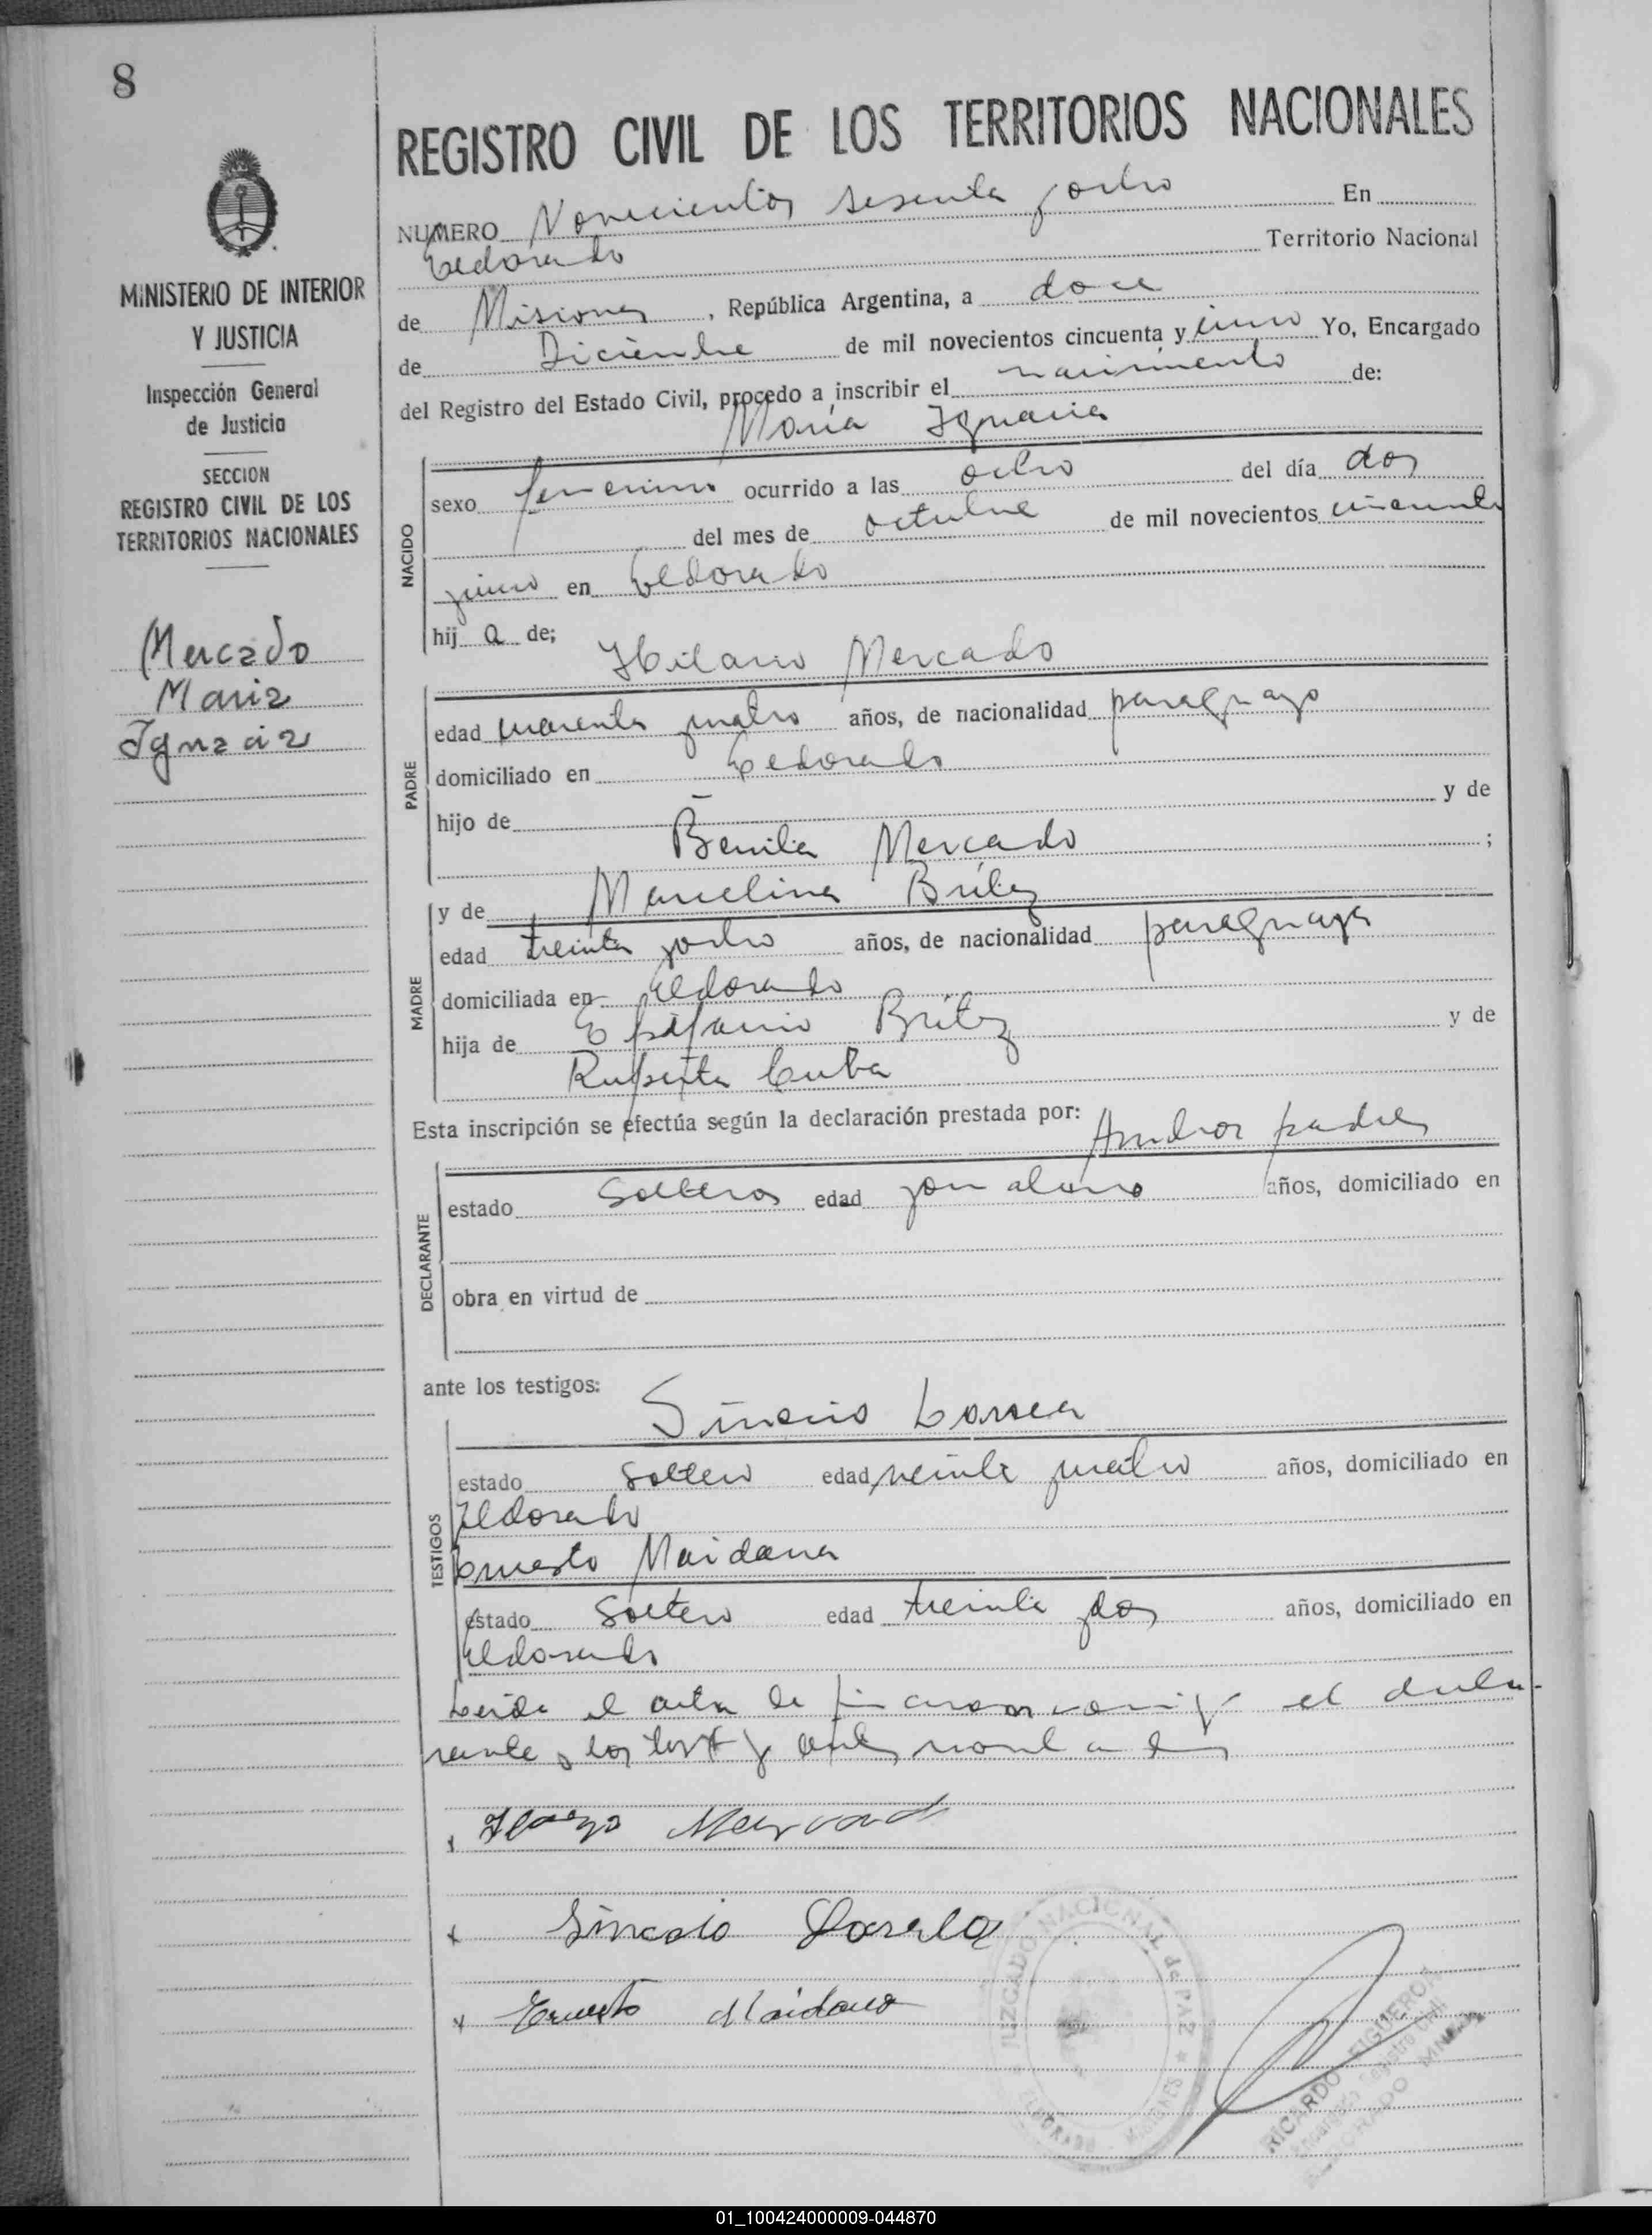 8
REGISTRO CIVIL DE LOS TERRITORIOS NACIONALES
NUMERO Novecientos sesenta y ocho En
Eldorado Territorio Nacional
de Misiones, República Argentina, a doce
de Diciembre de mil novecientos cincuenta y cinco Yo, Encargado
del Registro del Estado Civil, procedo a inscribir el nacimiento de:
María Ignacia
NACIDO
sexo femenino ocurrido a las ocho del día dos
del mes de octubre de mil novecientos cincuenta
y cinco en Eldorado
hija de;
Hilario Mercado
PADRE
edad cuarenta y cuatro años, de nacionalidad paraguayo
domiciliado en Eldorado
hijo de y de
Benita Mercado ;
y de Marcelina Britez
MADRE
edad treinta y ocho años, de nacionalidad paraguaya
domiciliada en Eldorado
hija de Epifanio Britez y de
Ruperta Cuba
Esta inscripción se efectúa según la declaración prestada por: Ambos padres
DECLARANTE
estado solteros edad años, domiciliado en
obra en virtud de
ante los testigos:
Sinecio
TESTIGOS
estado soltero edad veinte y cuatro años, domiciliado en
Eldorado
Ernesto Maidana
estado soltero edad treinta y dos años, domiciliado en
Eldorado
Leida el acta la el decla-
rante, los
x Mercado
x
x Ernesto Maidana
MINISTERIO DE INTERIOR
Y JUSTICIA
Inspección General
de Justicia
SECCION
REGISTRO CIVIL DE LOS
TERRITORIOS NACIONALES
Mercado
Maria
Ignacia
JUZGADO NACIONAL de PAZ
ELDORADO MISIONES
RICARDO FIGUEROA
Encargado Registro Civil
ELDORADO MNES.
01_100424000009-044870